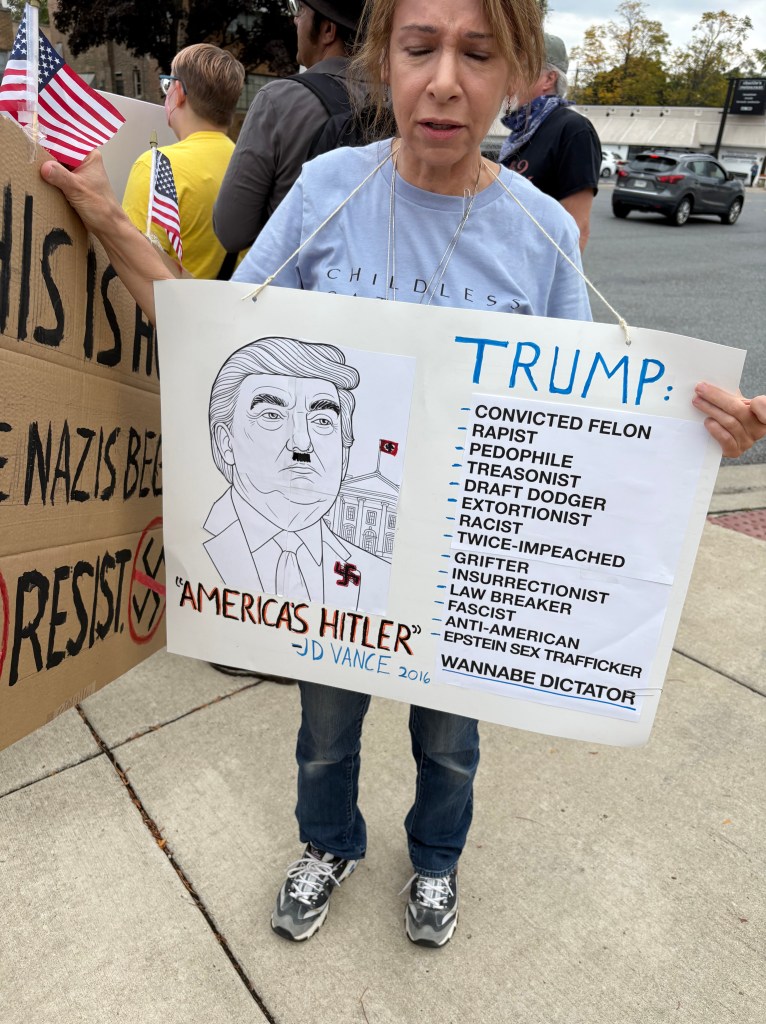 THIS IS
NAZIS BE
RESIST.
CHILDLESS
TRUMP:
- CONVICTED FELON
- RAPIST
- PEDOPHILE
- TREASONIST
- DRAFT DODGER
- EXTORTIONIST
- RACIST
- TWICE-IMPEACHED
- GRIFTER
- INSURRECTIONIST
- LAW BREAKER
- FASCIST
- ANTI-AMERICAN
- EPSTEIN SEX TRAFFICKER
WANNABE DICTATOR
"AMERICA'S HITLER"
-JD VANCE 2016